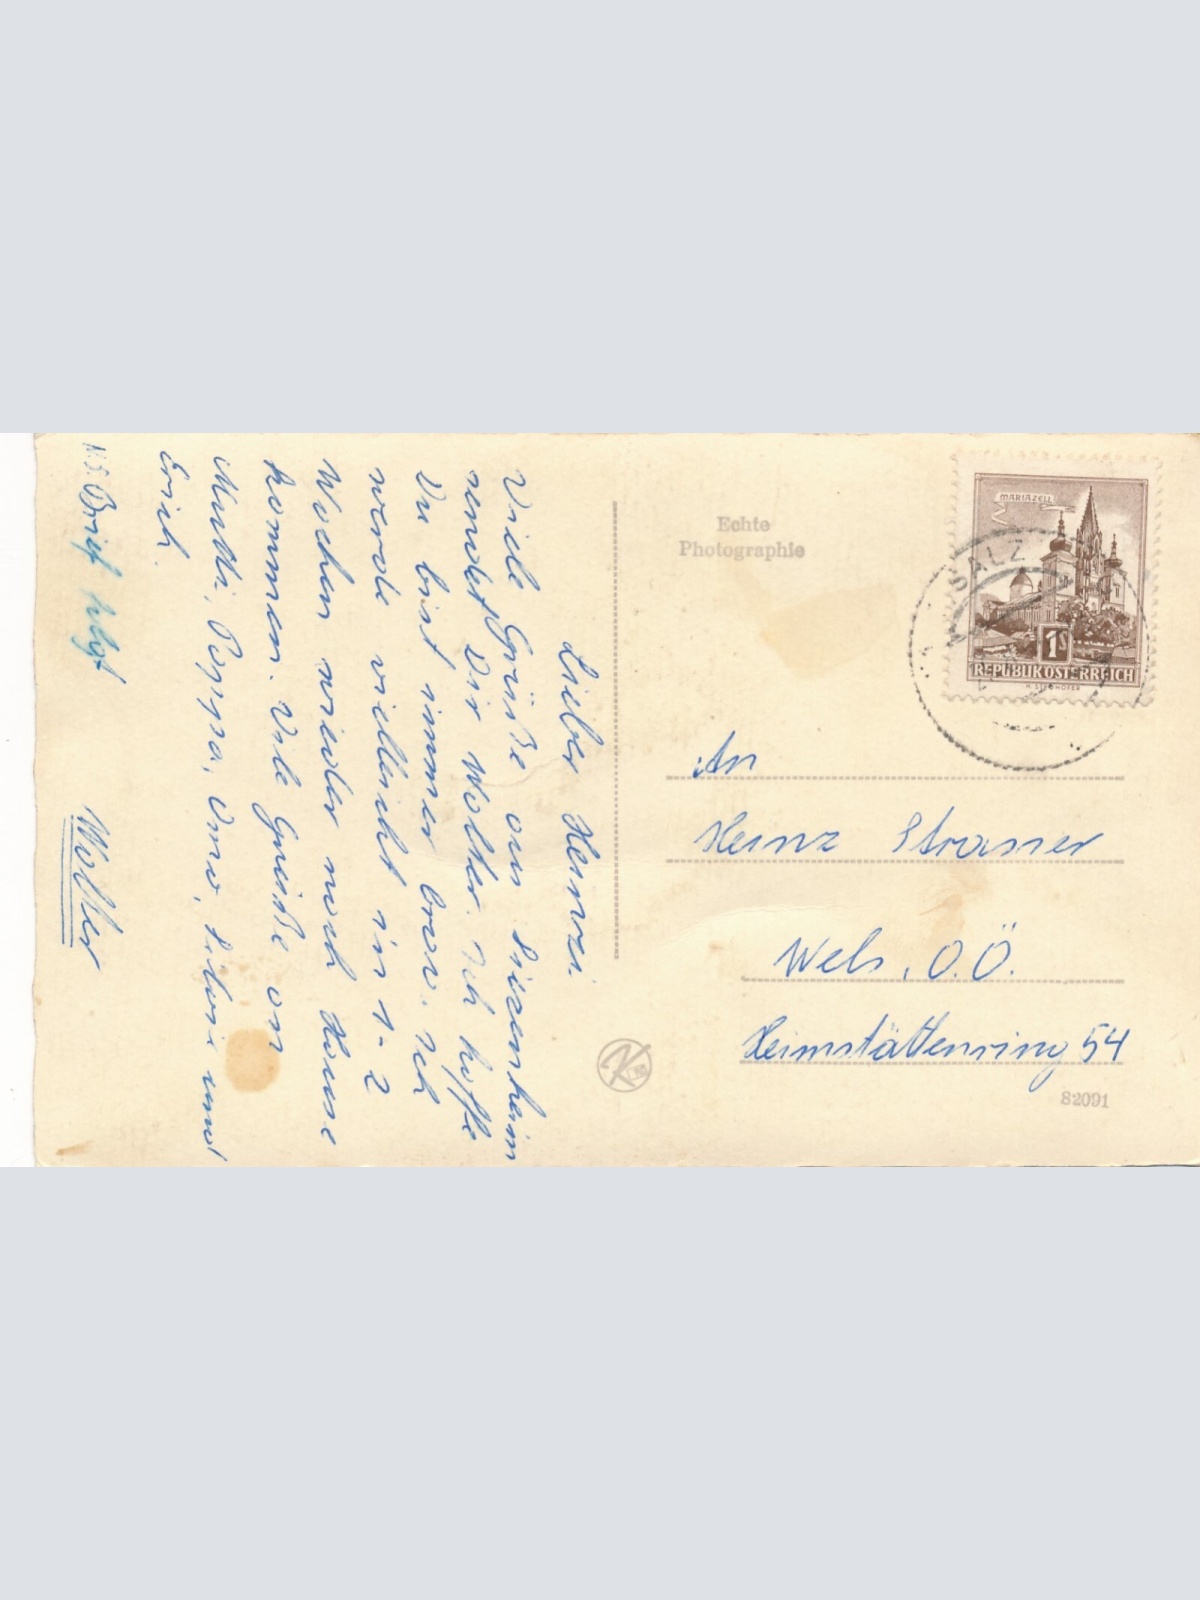 Lieber Heinzi.
Viele Grüße aus Siezenheim
sendet Dir Walter. Ich hoffe
Du bist immer brav. Ich
werde vielleicht in 1-2
Wochen wieder nach Hause
kommen. Viele Grüße an
Mutti, Pappa, Oma, und
Erich.
N.S. Brief folgt
Walter
Echte
Photographie
MARIAZELL
1S
REPUBLIK ÖSTERREICH
SALZ
An
Heinz Strasser
Wels, O.Ö.
Heimstättenring 54
82091